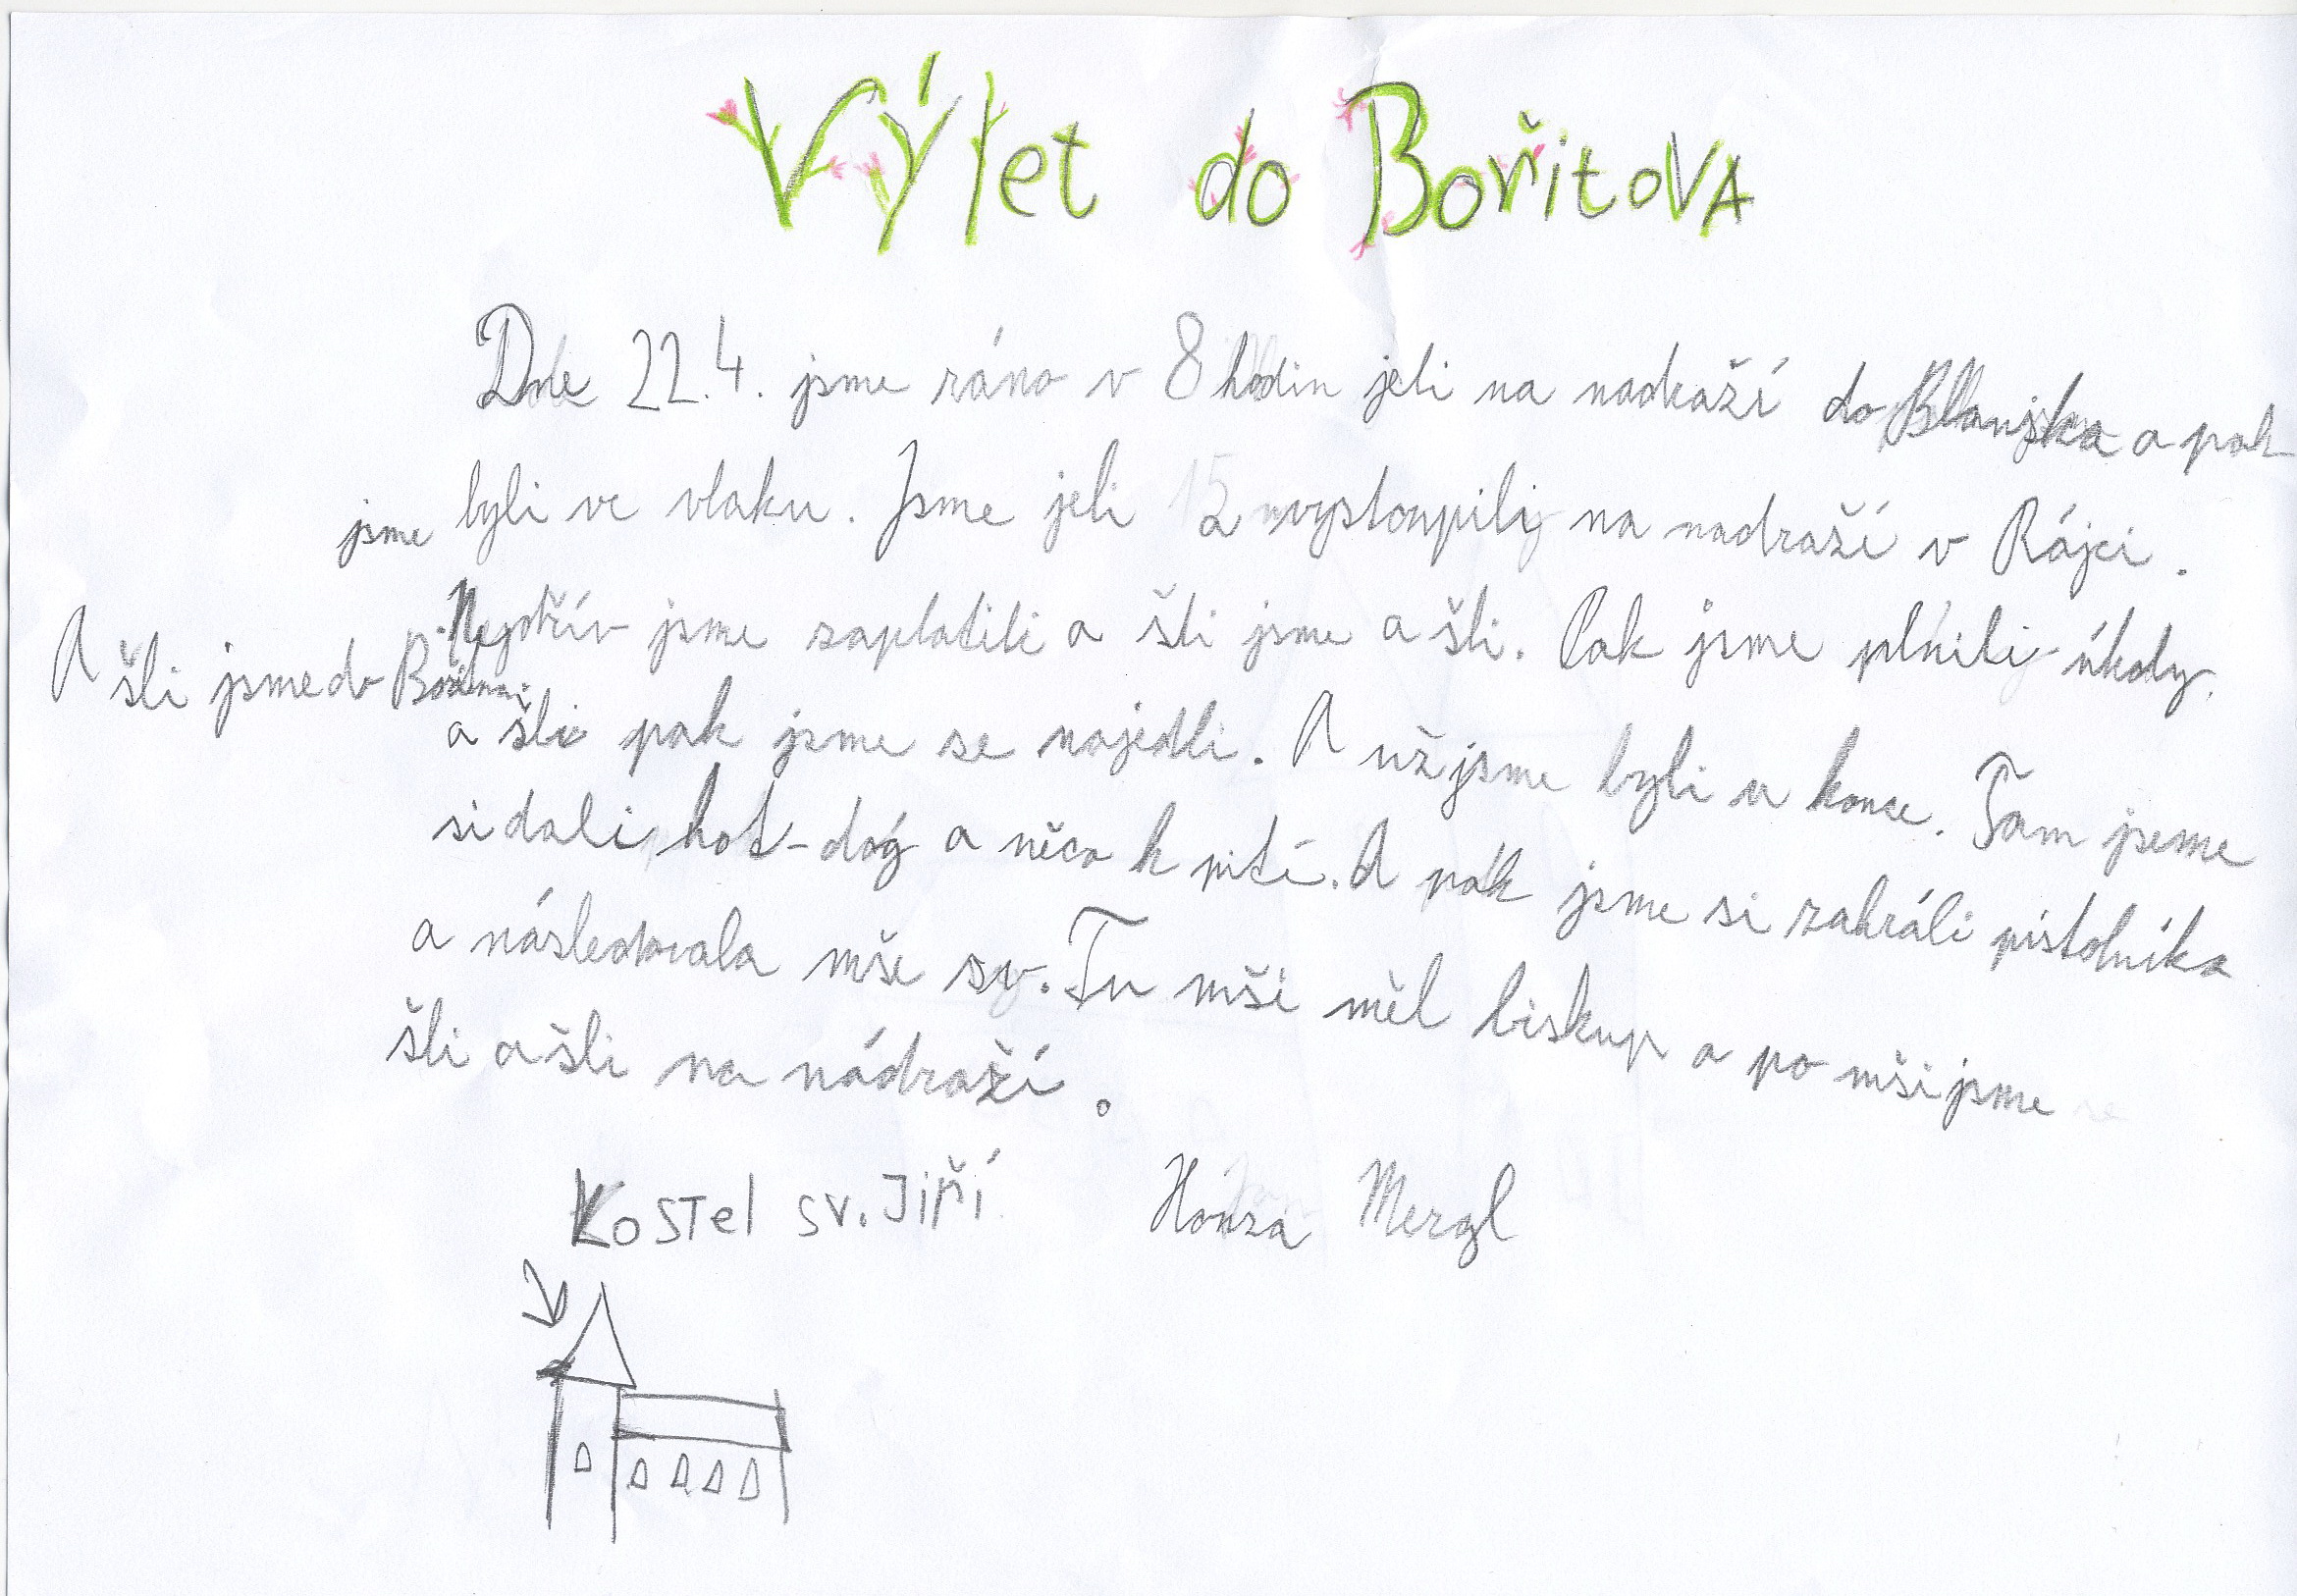 Výlet do Bořitova
Dne 22.4. jsme ráno v 8 hodin jeli na nadraží do Blanska a pak
jsme byli ve vlaku. Jsme jeli a vystoupili na nadraží v Rájci.
A šli jsme do
Nejdřív jsme zaplatili a šli jsme a šli. Pak jsme plnili úkoly.
a šli pak jsme se najedli. A už jsme byli u konce. Tam jsme
si dali hot-dog a něco k pití. A pak jsme si zahráli pistolníka
a následovala mše sv. Tu mši měl biskup a po mši jsme
šli a šli na nádraží.
Kostel sv. Jiří
Honza Mergl